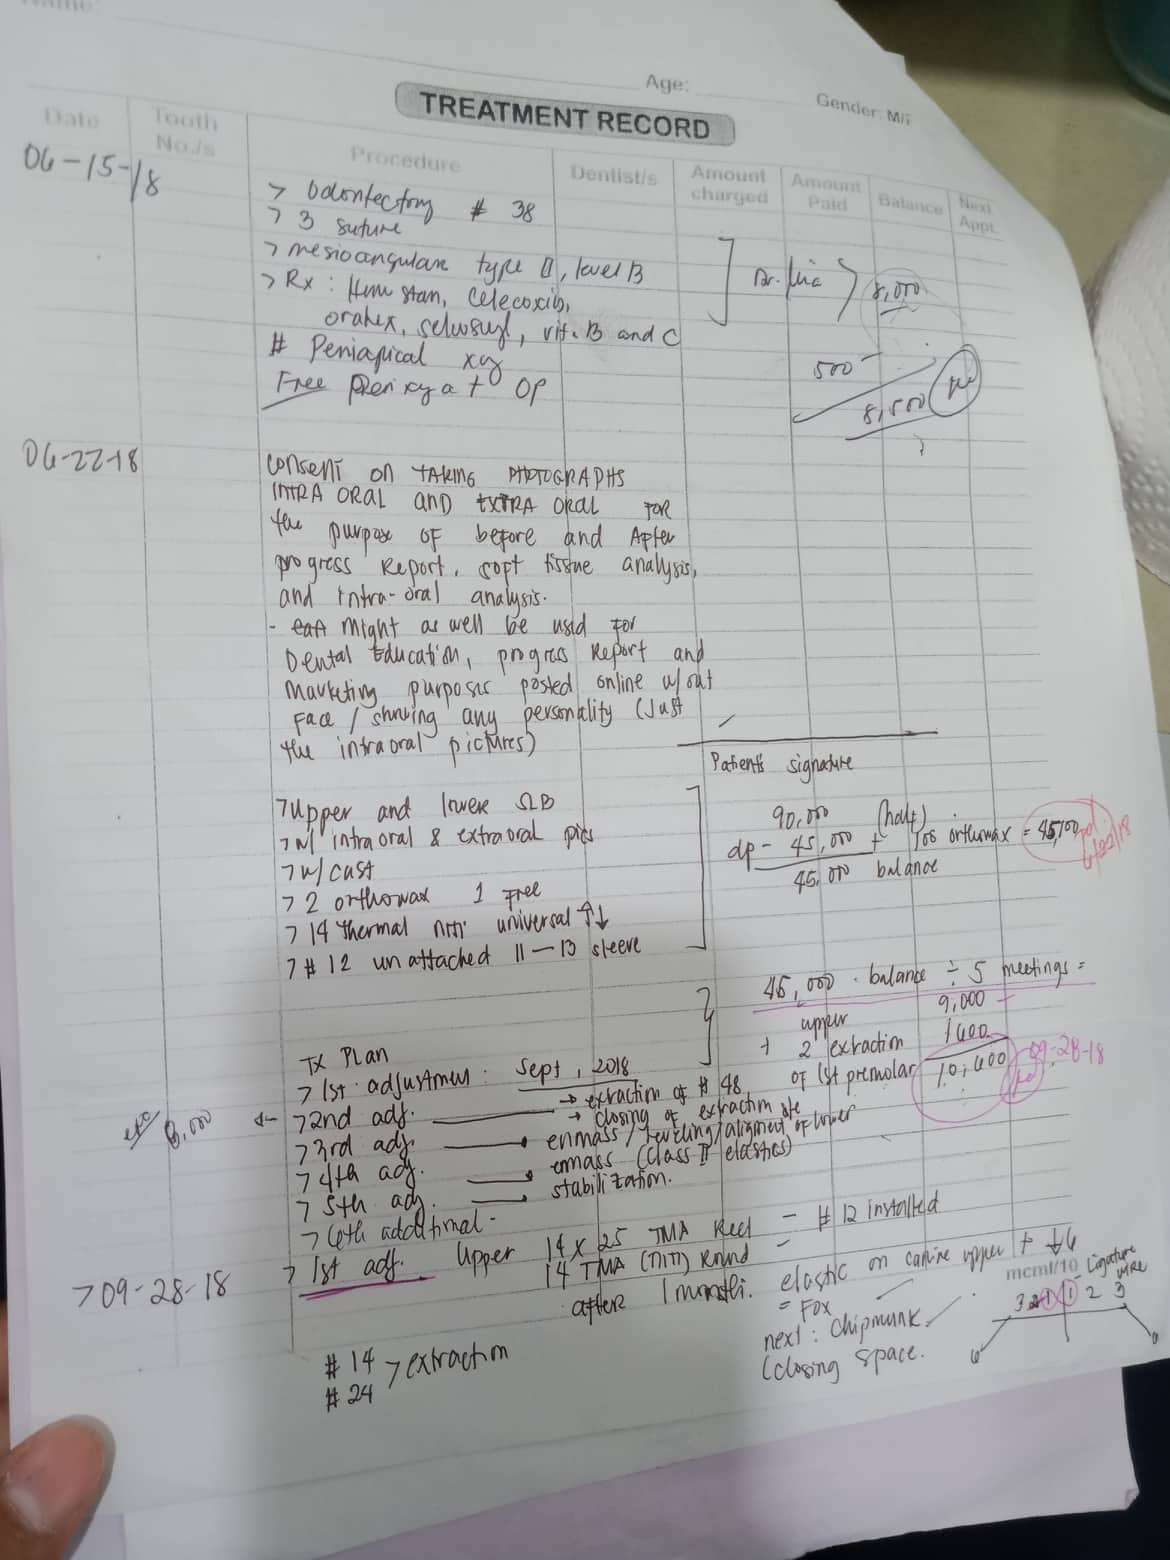 Name:
Age:
Gender: M/F
TREATMENT RECORD
Date
Tooth No./s
Procedure
Dentist/s
Amount charged
Amount Paid
Balance
Next Appt.
06-15-18
> Odontectomy # 38
> 3 suture
> mesioangular type II, level B
> Rx : Hemostan, Celecoxib,
orahex, vit. B and C
# Periapical xray
Free
OP
Dr.
8,000
500
8,500
06-22-18
Consent on TAKING PHOTOGRAPHS
INTRA ORAL AND EXTRA ORAL FOR
the purpose OF before and After
progress Report, soft tissue analysis,
and intra-oral analysis.
- might as well be used for
Dental Education, progress Report and
Marketing purposes posted online w/out
Face / showing any personality (Just
the intraoral pictures)
Patient's signature
> Upper and lower SLB
> w/ intraoral & extraoral pics
> w/ cast
> 2 orthowax 1 Free
> 14 thermal niti universal ↑↓
> # 12 unattached 11 — 13 sleeve
90,000 (half)
dp - 45,000 + 100 orthowax = 45,100
45,000 balance
6/22/18
45,000 balance ÷ 5 meetings =
9,000
upper
+ 2 extraction 1400
of 1st premolar 10,400
09-28-18
TX PLAN
> 1st adjustment : Sept, 2018
8,000 > 2nd adj. → extraction of # 48
→ closing of extraction site
> 3rd adj. enmass / leveling/alignment of lower
> 4th adj. enmass (class II elastics)
> 5th adj. stabilization.
> 6th additional -
> 09-28-18
> 1st adj. Upper 14 x 25 TMA Rect - # 12 installed
14 TMA (niti) Round
after 1 month.
elastic on canine upper + ↓6
= Fox
next : Chipmunk
(closing space.
mcml/10 Ligature wire
3 2 1 | 1 2 3
6 6
# 14 > extraction
# 24